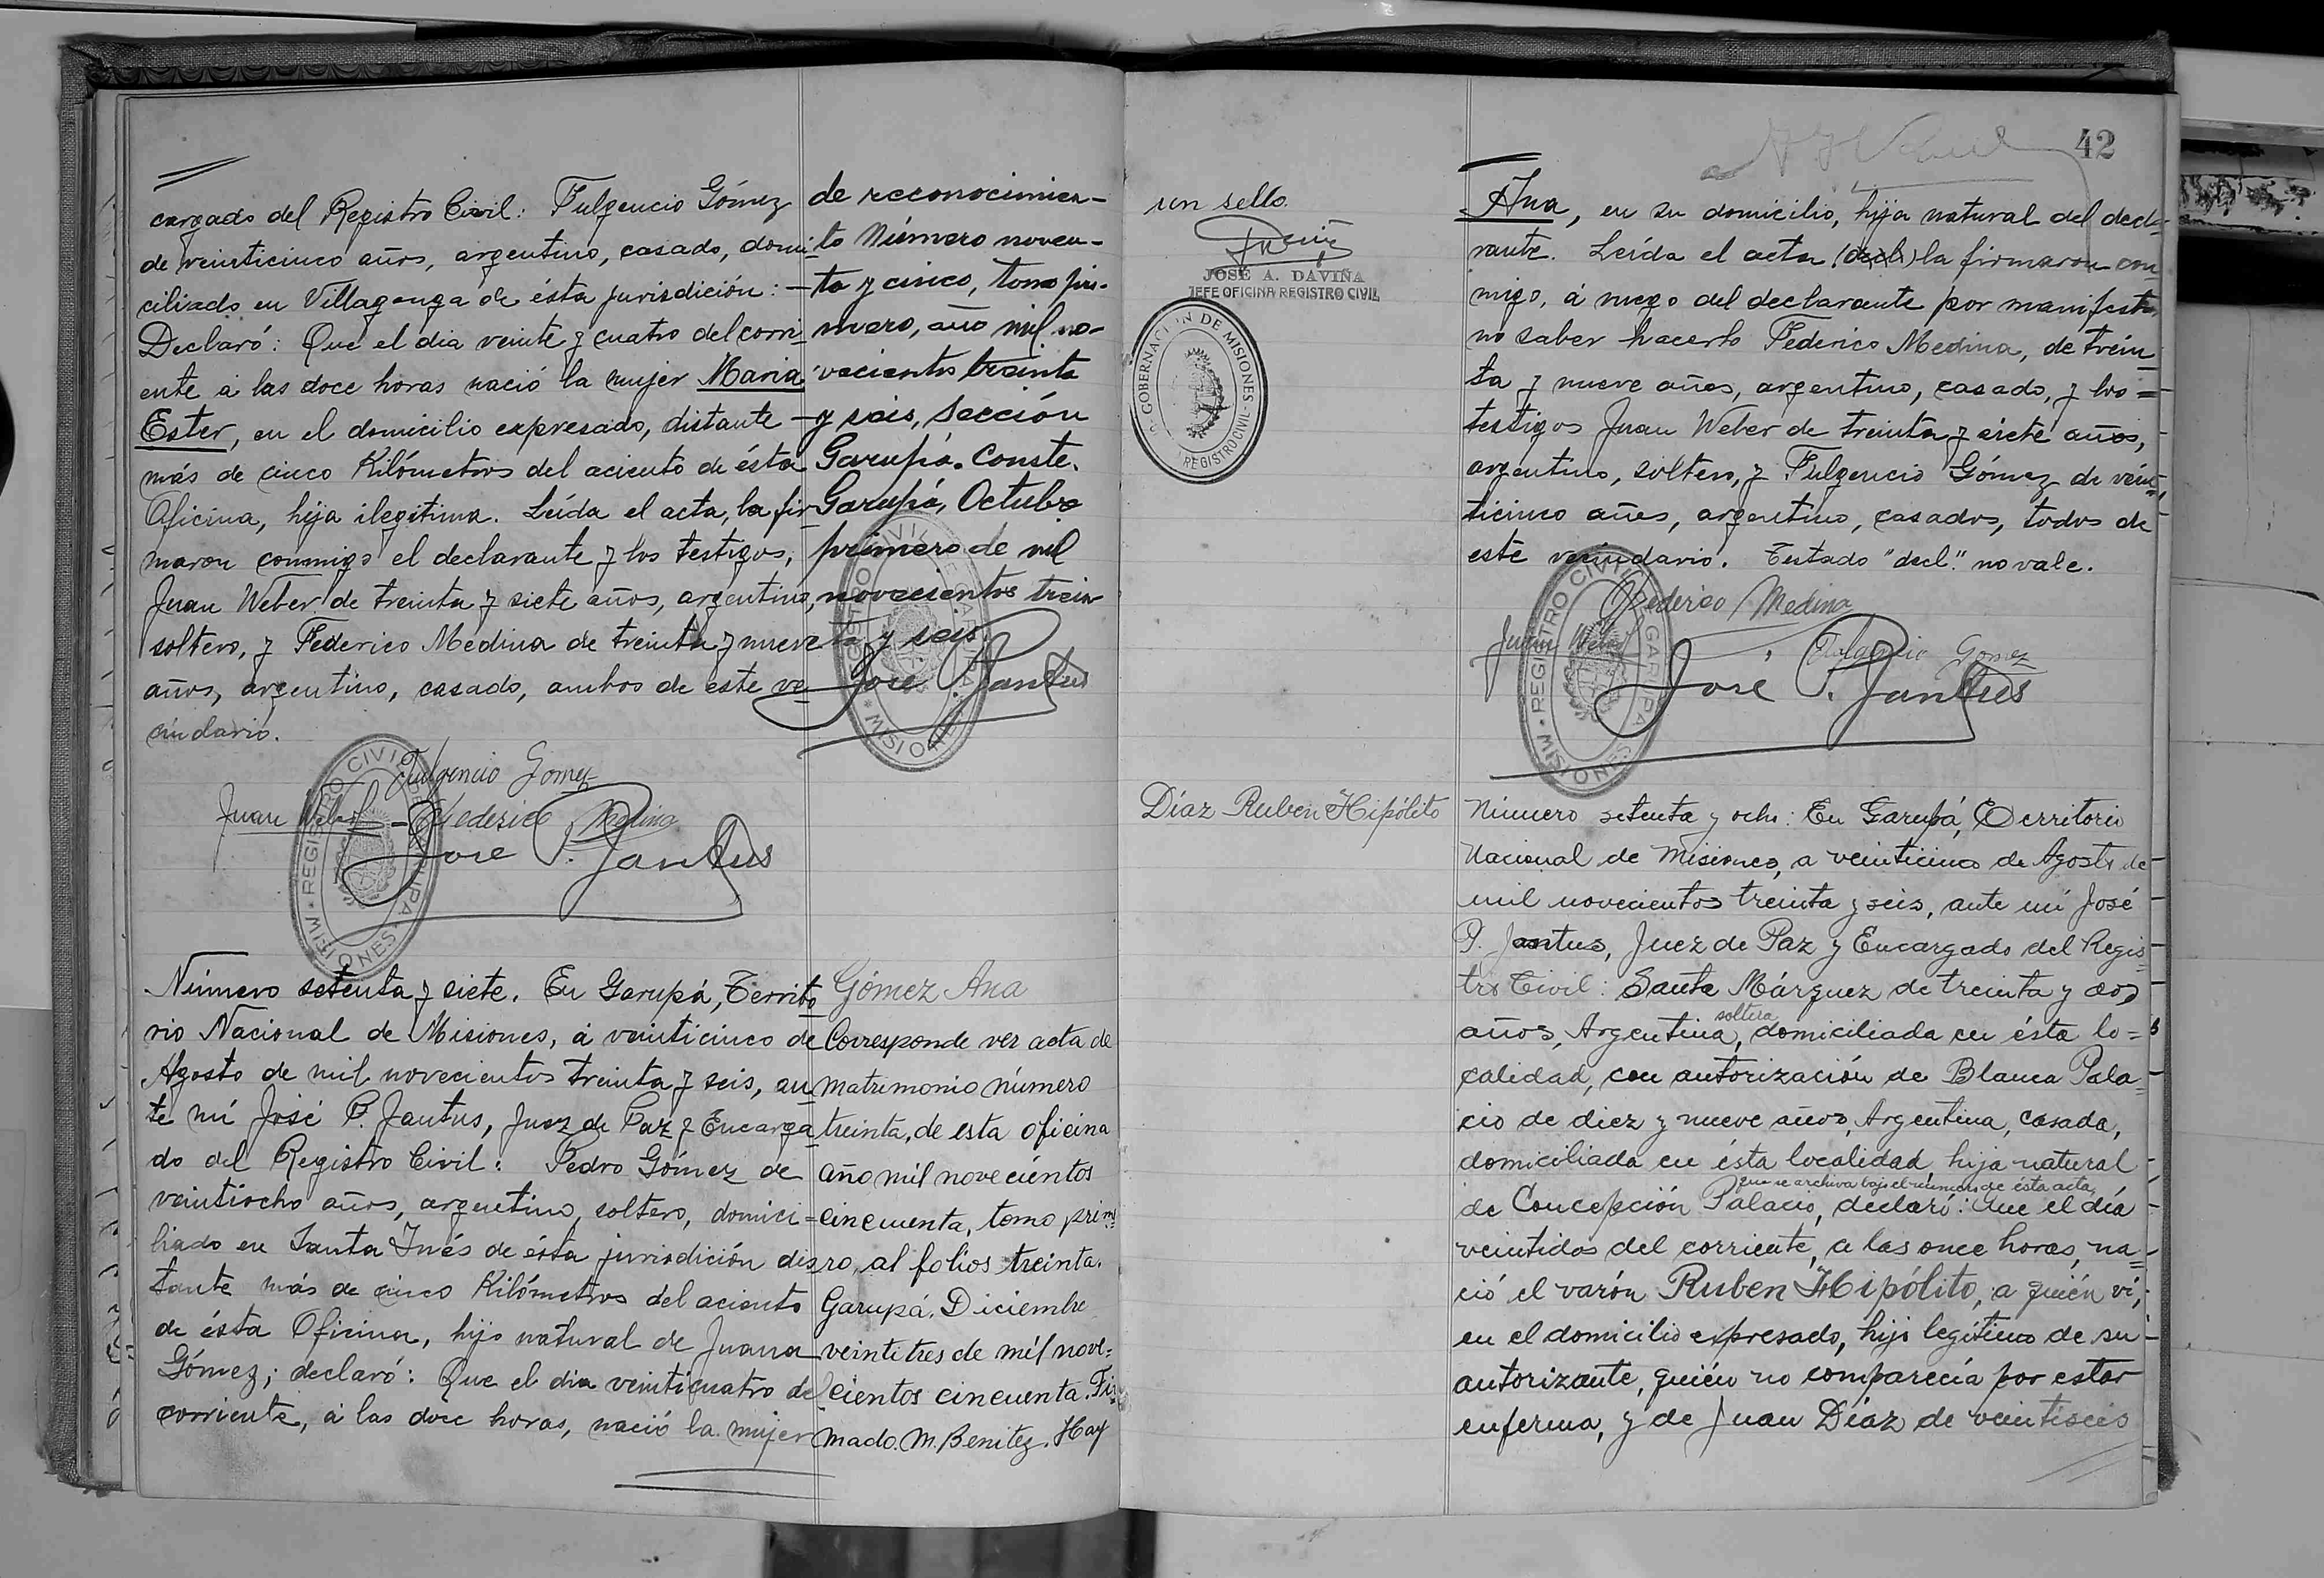 cargado del Registro Civil: Fulgencio Gómez
de veinticinco años, argentino, casado, domi-
ciliado en Villagonga de ésta jurisdición: —
Declaró: Que el dia veinte y cuatro del corri-
ente á las doce horas nació la mujer Maria
Ester, en el domicilio expresado, distante —
más de cinco Kilómetros del aciento de ésta
Oficina, hija ilegitima. Leída el acta, la fir-
maron conmigo el declarante y los testigos,
Juan Weber de treinta y siete años, argentino,
soltero, y Federico Medina de treinta y nueve
años, argentino, casado, ambos de este ve-
cindario.
Fulgencio Gomez
Juan Weber - Federico Medina
José P. Jantus
REGISTRO CIVIL GARUPA MISIONES
Número setenta y siete. En Garupá, Territo-
rio Nacional de Misiones, á veinticinco de
Agosto de mil novecientos treinta y seis, an-
te mi José P. Jantus, Juez de Paz y Encarga-
do del Registro Civil: Pedro Gómez de
veintiocho años, argentino, soltero, domici=
liado en Santa Inés de ésta jurisdición dis-
tante más de cinco Kilómetros del aciento
de ésta Oficina, hijo natural de Juana
Gómez; declaró: Que el dia veinticuatro del
corriente, á las doce horas, nació la mujer
de reconocimien-
to Número noven-
ta y cinco, tomo pri-
mero, año mil no-
vecientos treinta
y seis, Sección
Garupá. Conste.
Garupá, Octubre
primero de mil
novecientos trein
ta y seis
José P. Jantus
REGISTRO CIVIL GARUPA MISIONES
Gómez Ana
Corresponde ver acta de
matrimonio número
treinta, de esta oficina
año mil novecientos
cincuenta, tomo prime
ro, al folios treinta.
Garupá, Diciembre
veintitres de mil nove=
cientos cincuenta. Fir-
mado. M. Benitez. Hay
un sello.
JOSE A. DAVIÑA
JEFE OFICINA REGISTRO CIVIL
GOBERNACION DE MISIONES - REGISTRO CIVIL
42
Ana, en su domicilio, hija natural del decla-
rante. Leída el acta (decl) la firmaron con
migo, á ruego del declarante por manifestar
no saber hacerlo Federico Medina, de trein-
ta y nueve años, argentino, casado, y los =
testigos Juan Weber de treinta y siete años,
argentino, soltero, y Fulgencio Gómez de vein-
ticinco años, argentino, casados, todos de
este vecindario. Testado "decl." no vale.
Federico Medina
Juan Weber Fulgencio Gomez
José P. Jantus
REGISTRO CIVIL GARUPA MISIONES
Díaz Ruben Hipólito
Número setenta y ocho: En Garupá, Territorio
Nacional de Misiones, a veinticinco de Agosto de
mil novecientos treinta y seis, ante mí José
P. Jantus, Juez de Paz y Encargado del Regis-
tro Civil: Santa Márquez de treinta y dos
soltera
años, Argentina, domiciliada en ésta lo=
calidad, con autorización de Blanca Pala-
cio de diez y nueve años, Argentina, casada,
domiciliada en ésta localidad, hija natural
que se archiva bajo el número de ésta acta,
de Concepción Palacio, declaró: Que el día
veintidos del corriente, a las once horas, na-
ció el varón Ruben Hipólito, a quién ví,
en el domicilio expresado, hijo legítimo de su
autorizante, quién no comparecía por estar
enferma, y de Juan Díaz de veintiseis